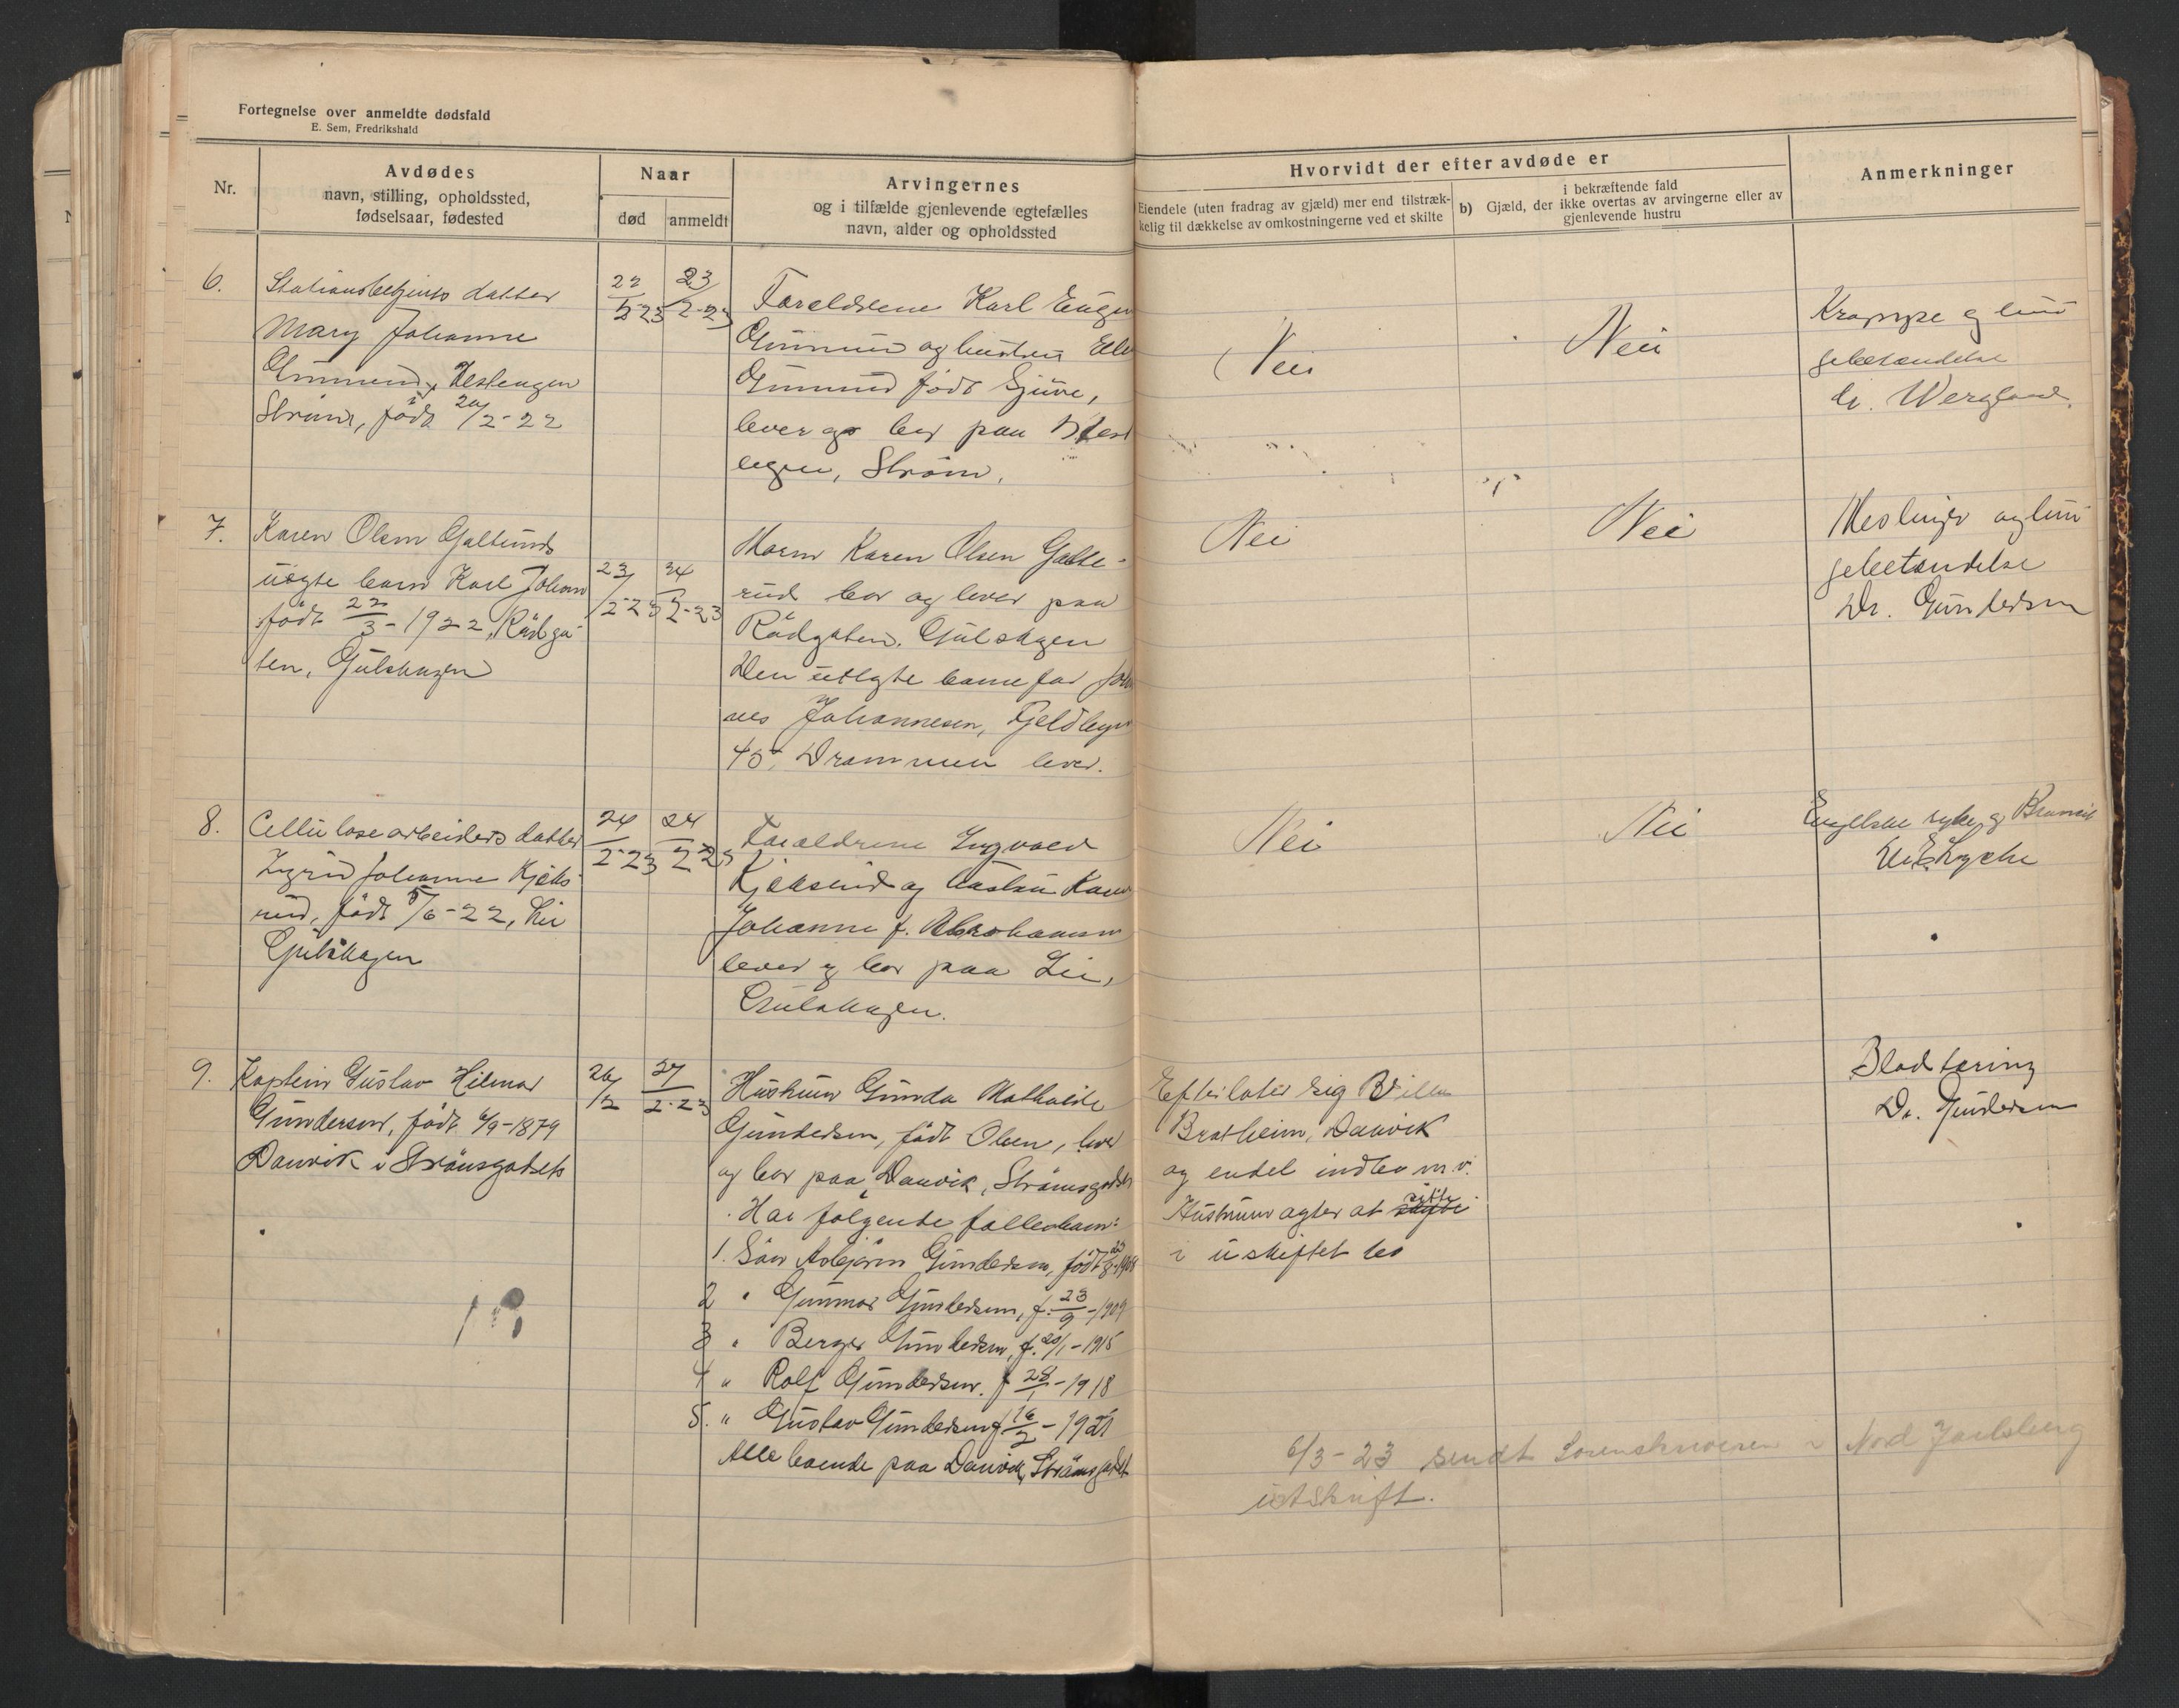 Fortegnelse over anmeldte dødsfald
E. Sem, Fredrikshald
Nr.
Avdødes
navn, stilling, opholdssted,
fødselsaar, fødested
Naar
død
anmeldt
Arvingernes
og i tilfælde gjenlevende egtefælles
navn, alder og opholdssted
Hvorvidt der efter avdøde er
Eiendele (uten fradrag av gjæld) mer end tilstræk-
kelig til dækkelse av omkostningerne ved et skifte
b) Gjæld, der ikke overtas av arvingerne eller av
i bekræftende fald
gjenlevende hustru
Anmerkninger
6.
Stationsbetjents datter
Mary Johanne
Strøm, født 2-22
22/2-23
23/2-23
Foreldrene Karl Eugen
og hustru
født Gjüve,
lever og bor paa
Strøm.
Nei
Nei
Krampe og lun
gebetændelse
dr. Wergland.
7.
Karen Olsen Galteruds
uegte barn Karl Johan
født 22/3-1922, Rådga-
ten, Gulskogen
23/2-23
24/2-23
Moren Karen Olsen Galte-
rud bor og lever paa
Rådgaten, Gulskogen
Den utlagte barnefar Johan
nes Johannesen,
Drammen lever.
Nei
Nei
Meslinger og lun
gebetændelse
Dr. Gundersen
8.
Cellulosearbeiders datter
Ingrid Johanne Kjøks
rud, født 5/6-22, Lie
Gulskogen
24/2-23
24/2-23
Forældrene Ingvald
Kjøksrud og hustru Karen
Johanne f. Abrahamsen
lever og bor paa Lie,
Gulskogen.
Nei
Nei
Engelske syke og
Lyche
9.
Kaptein Gustav Hilmar
Gundersen, født /9-1879
Danvik i Strømsgodset
26/2
27/2-23
Hustruen Gunda Mathilde
Gundersen, født Olsen, lever
og bor paa Danvik, Strømsgodset
Har følgende fellesbarn:
1. Søn Asbjørn Gundersen, født
2 " Gunnar Gundersen, f. 23/9-1909
3 " Berger Gundersen, f. 20/1-1915
4 " Rolf Gundersen. f 28/1-1918
5. " Gustav Gundersen f 16/2-1921
Alle boende paa Danvik, Strømsgodset
Efterlater sig Villa
Bratheim, Danvik
og endel indbo m.v.
Hustruen agter at sitte
i uskiftet bo
Blodtæring
Dr. Gundersen
6/3-23 sendt Sorenskriveren i Nord Jarlsberg
utskrift.